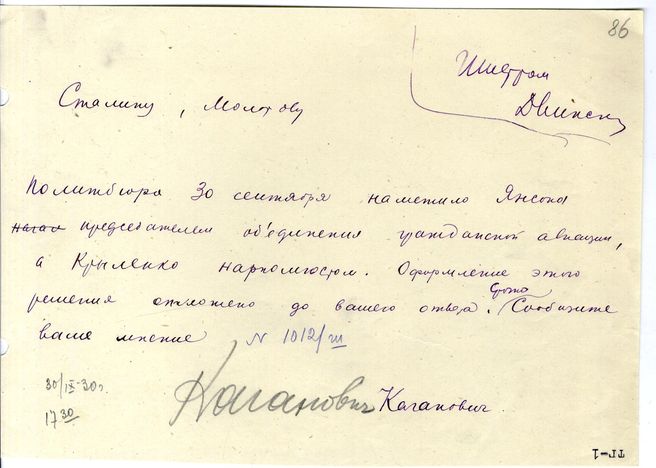 86
Шифром
Двинск
Сталину, Молотову
Политбюро 30 сентября наметило Янсона
начал председателем объединения гражданской авиации,
а Крыленко наркомюстом. Оформление этого
решения отложено до вашего ответа. Срочно Сообщите
ваше мнение N 1012/ш
30/IX-30г.
17 30
Каганович Каганович.
ТГ-1